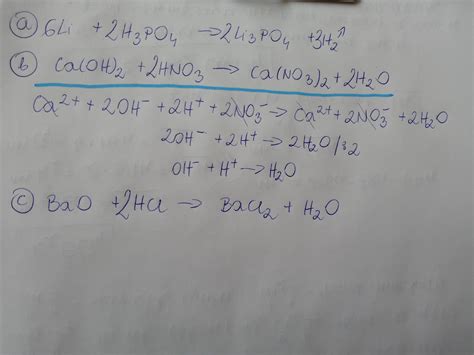 a) 6Li + 2H₃PO₄ → 2Li₃PO₄ + 3H₂↑
b) Ca(OH)₂ + 2HNO₃ → Ca(NO₃)₂ + 2H₂O
Ca²⁺ + 2OH⁻ + 2H⁺ + 2NO₃⁻ → Ca²⁺ + 2NO₃⁻ + 2H₂O
2OH⁻ + 2H⁺ → 2H₂O /:2
OH⁻ + H⁺ → H₂O
c) BaO + 2HCl → BaCl₂ + H₂O